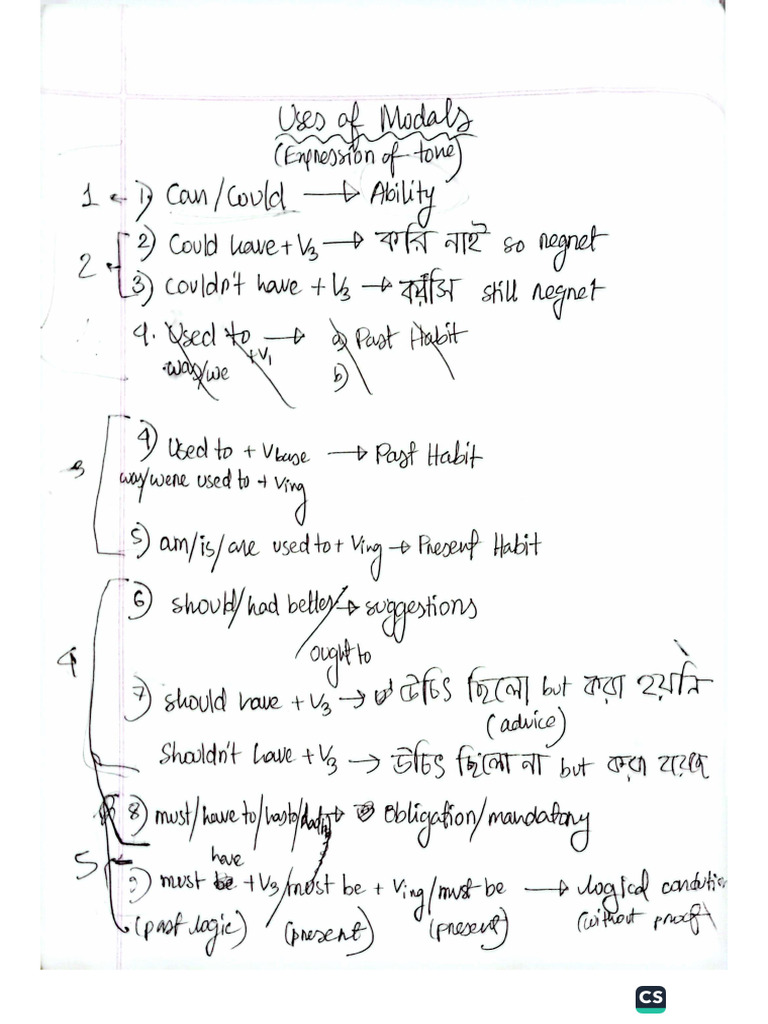 Uses of Modals
(Expression of tone)
1 ← 1) Can/Could → Ability
2 2) Could have + V3 → করি নাই so regret
3) couldn't have + V3 → still regret
4. Used to + V1 → a) Past Habit
was/we b)
3 4) Used to + Vbase → Past Habit
was/were used to + Ving
5) am/is/are used to + Ving → Present Habit
4 6) should/had better/ → suggestions
ought to
7) should have + V3 → উচিৎ ছিলো but করা হয়নি
(advice)
Shouldn't have + V3 → উচিৎ ছিলো না but করা হয়েছে
8) must/have to/has to/had to → Obligation/mandatory
have
5 9) must be + V3/must be + Ving/must be → logical condition
(past logic) (present) (present) (without proof)
CS